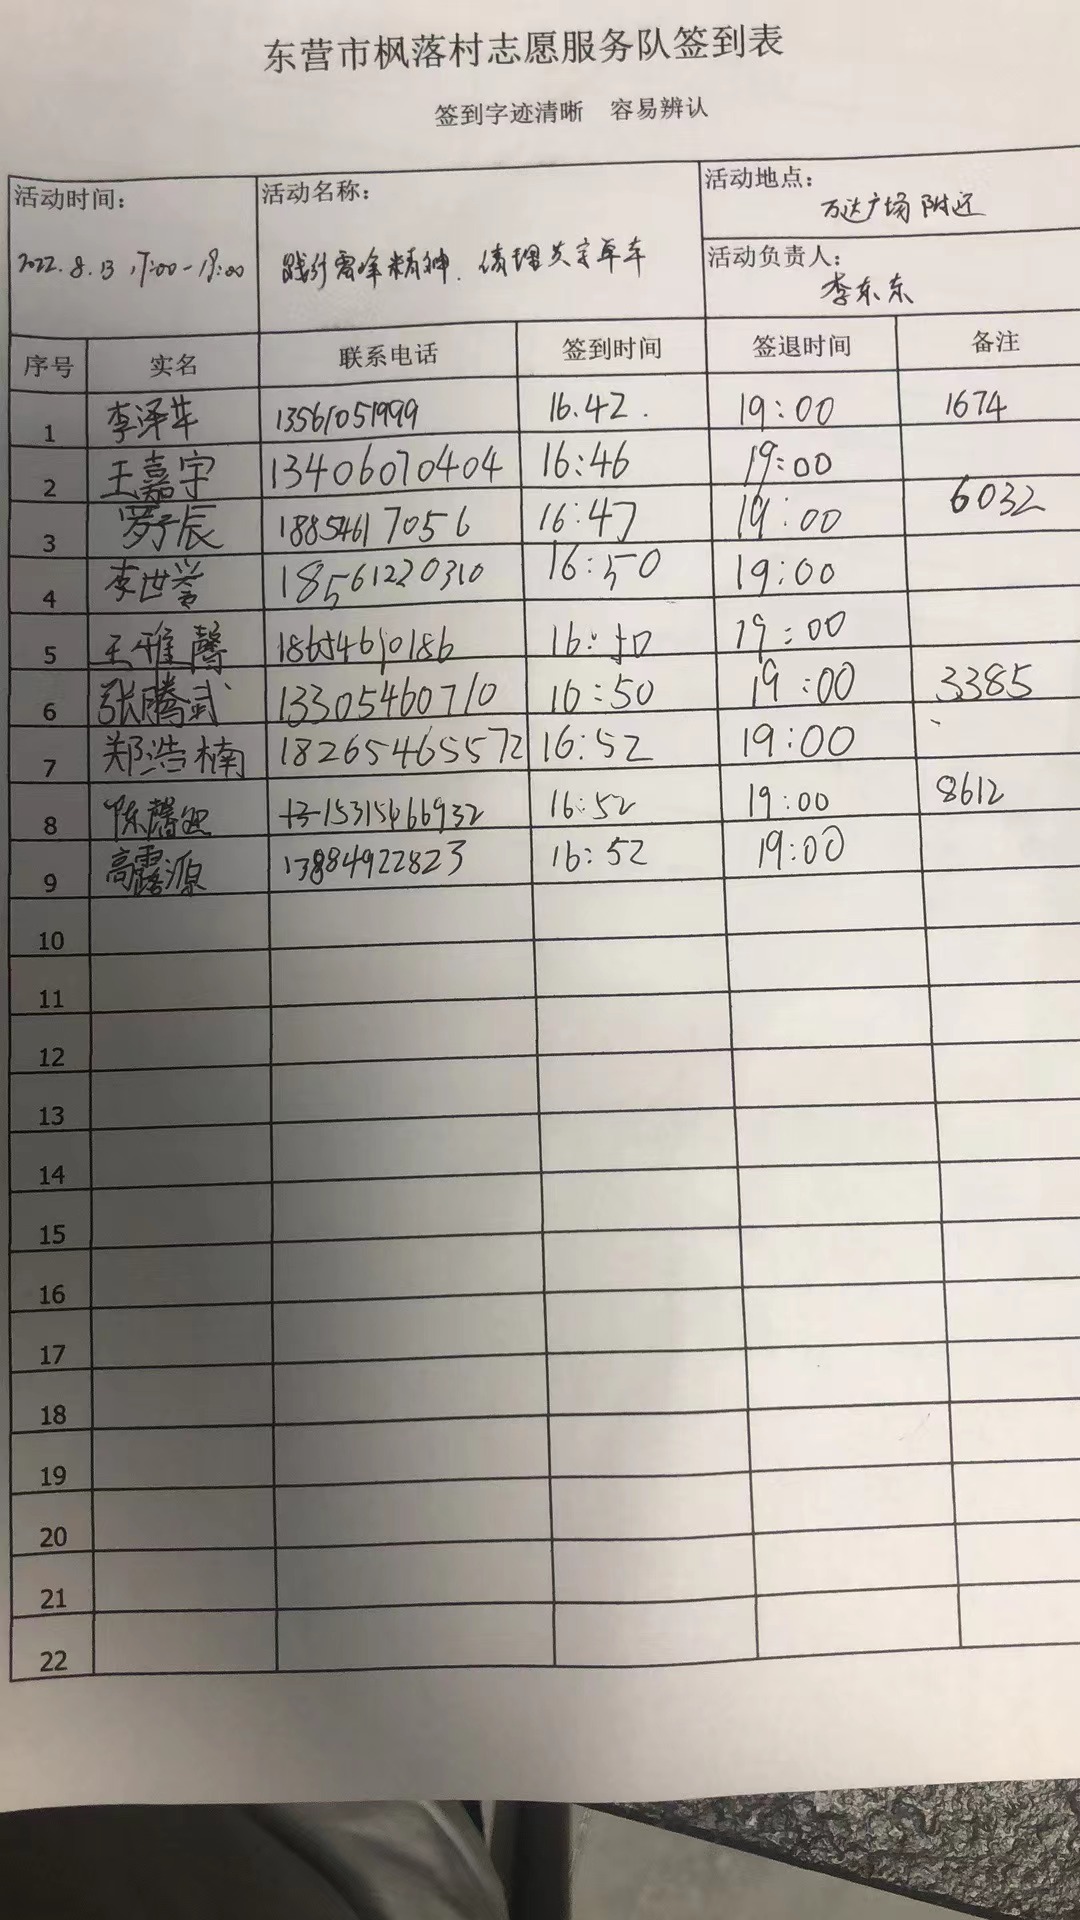 东营市枫落村志愿服务队签到表
签到字迹清晰 容易辨认
活动时间: 活动名称: 活动地点:
万达广场附近
2022.8.13 17:00-19:00 践行雷锋精神、清理共享单车
活动负责人:
李东东
序号 实名 联系电话 签到时间 签退时间 备注
1 李泽华 13561051999 16.42. 19:00 1674
2 王嘉宇 13406070404 16:46 19:00
3 罗予辰 18854617056 16:47 19:00 6032
4 李世誉 18561220310 16:50 19:00
5 王雅馨 186546 0186 16:50 19:00
6 张腾武 13305460710 16:50 19:00 3385
7 郑浩楠 18265465572 16:52 19:00
8 陈馨 15315466932 16:52 19:00 8612
9 高露源 13884922823 16:52 19:00
10
11
12
13
14
15
16
17
18
19
20
21
22